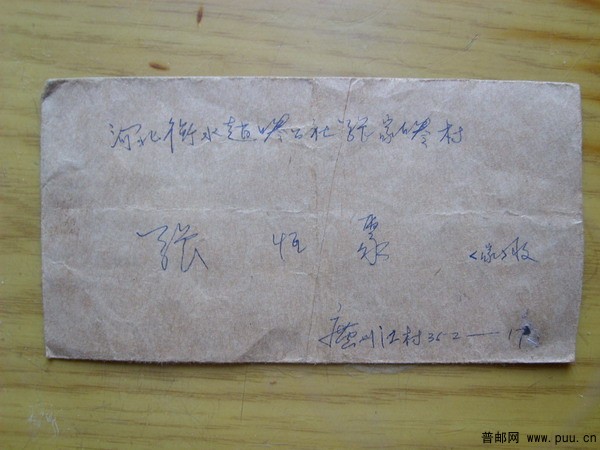 河北衡水赵公社张家村
张 恒 (家)收
廣州江村352—17
普邮网 www.puu.cn